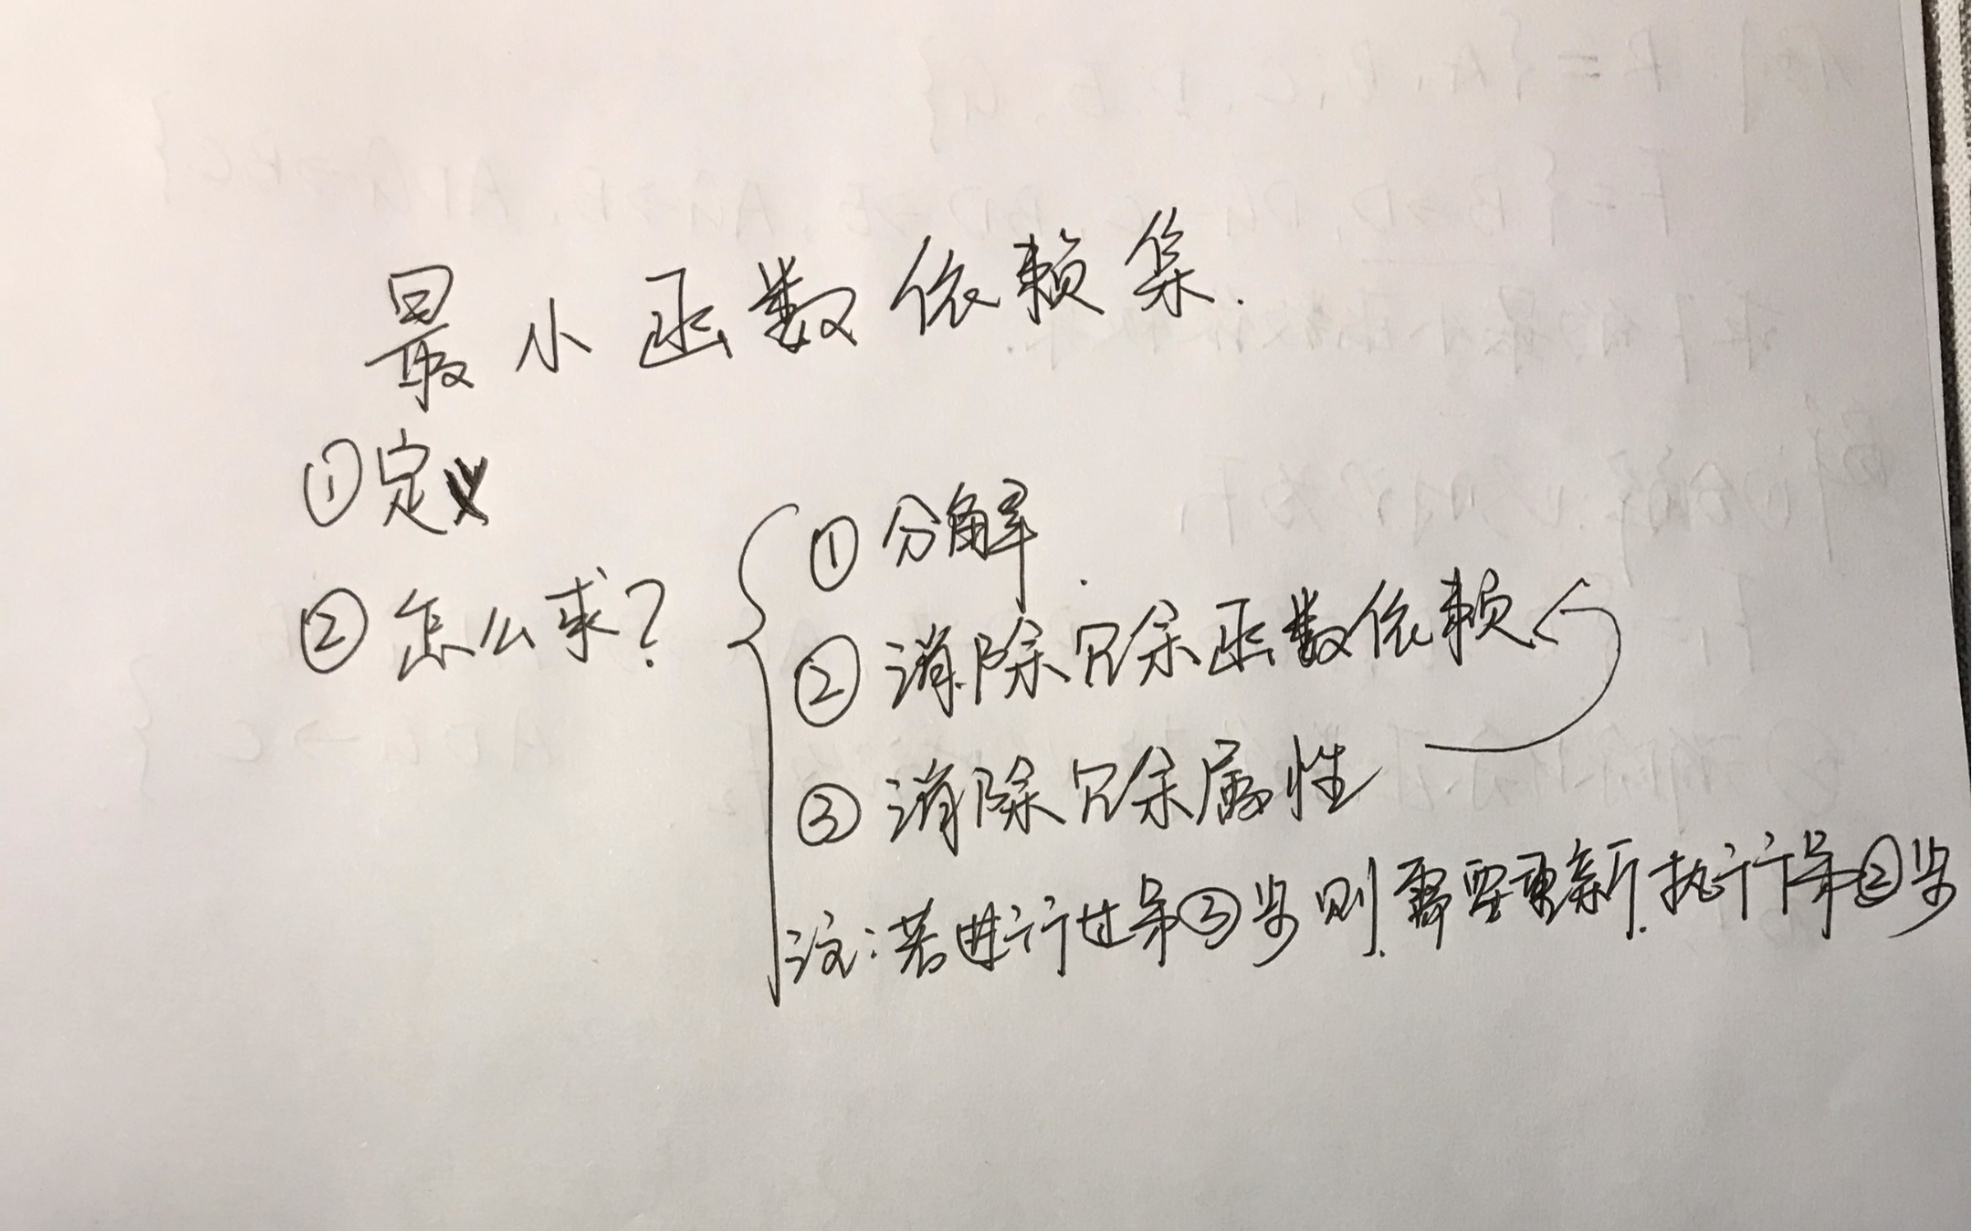 最小函数依赖集.
①定义
②怎么求?
①分解.
②消除冗余函数依赖
③消除冗余属性
注:若进行过第③步则需要重新执行第②步